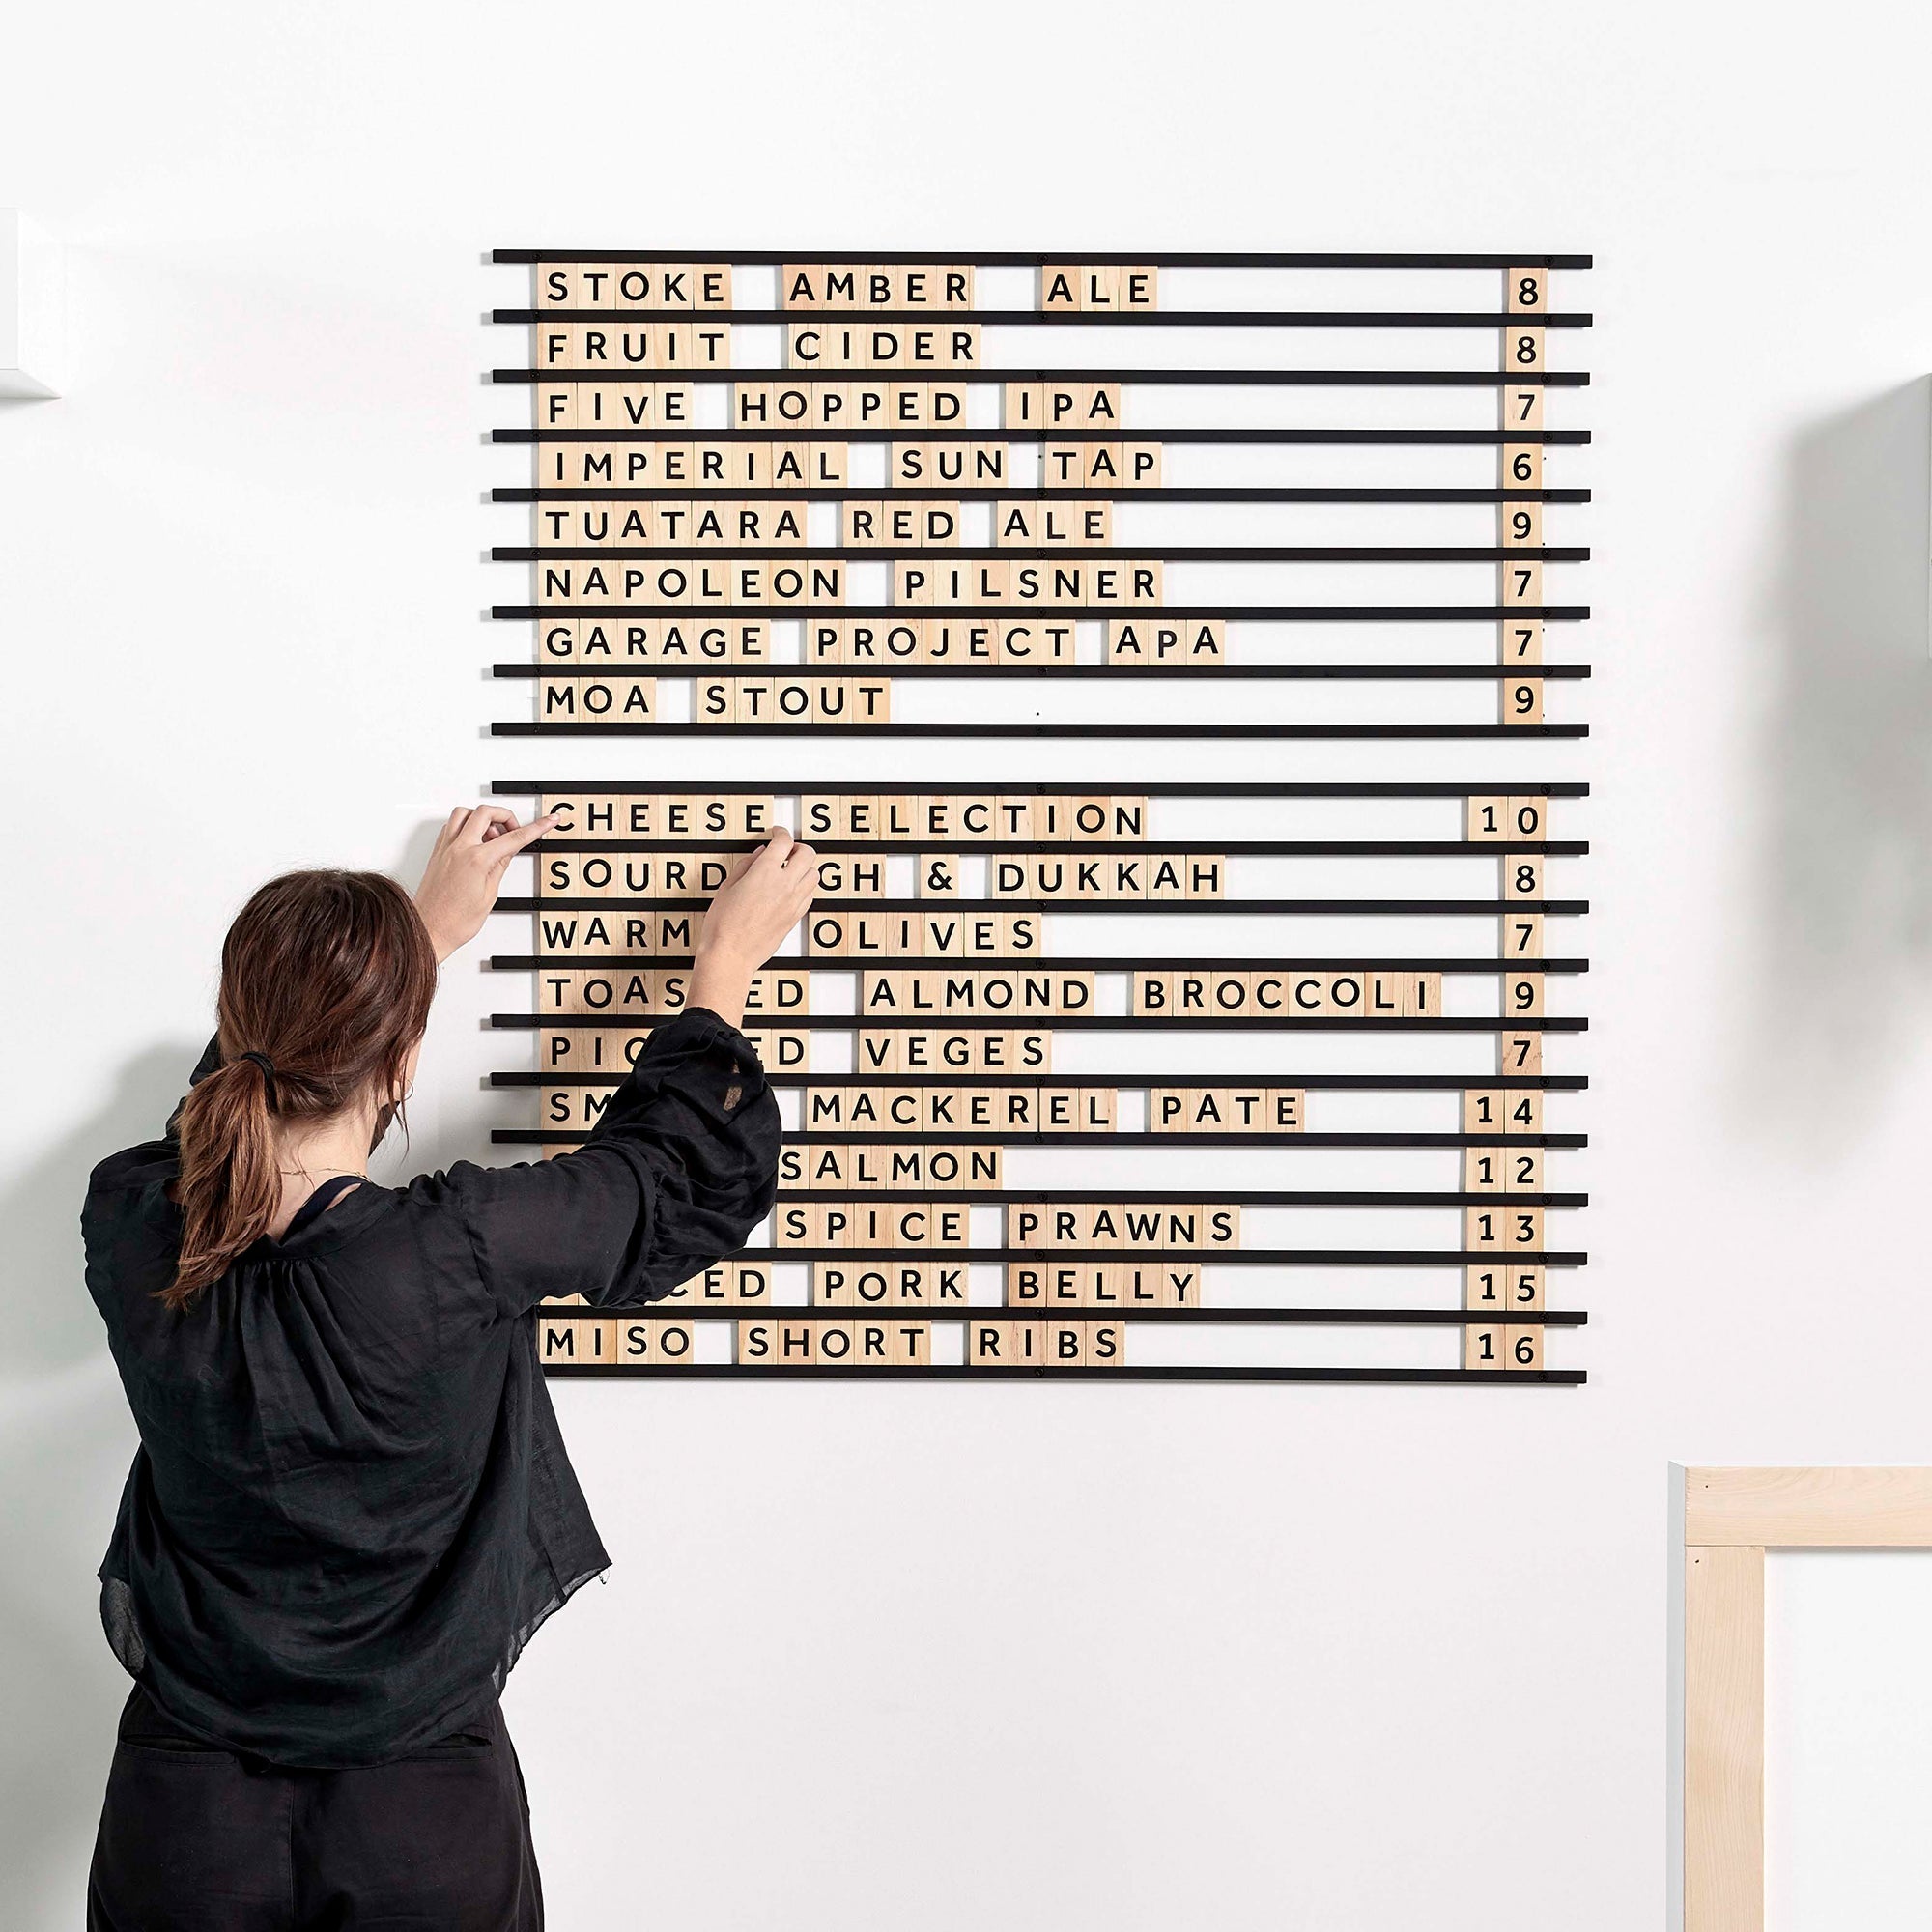 STOKE AMBER ALE 8
FRUIT CIDER 8
FIVE HOPPED IPA 7
IMPERIAL SUN TAP 6
TUATARA RED ALE 9
NAPOLEON PILSNER 7
GARAGE PROJECT APA 7
MOA STOUT 9
CHEESE SELECTION 10
& DUKKAH 8
WARM OLIVES 7
ALMOND BROCCOLI 9
VEGES 7
MACKEREL PATE 14
SALMON 12
SPICE PRAWNS 13
PORK BELLY 15
MISO SHORT RIBS 16